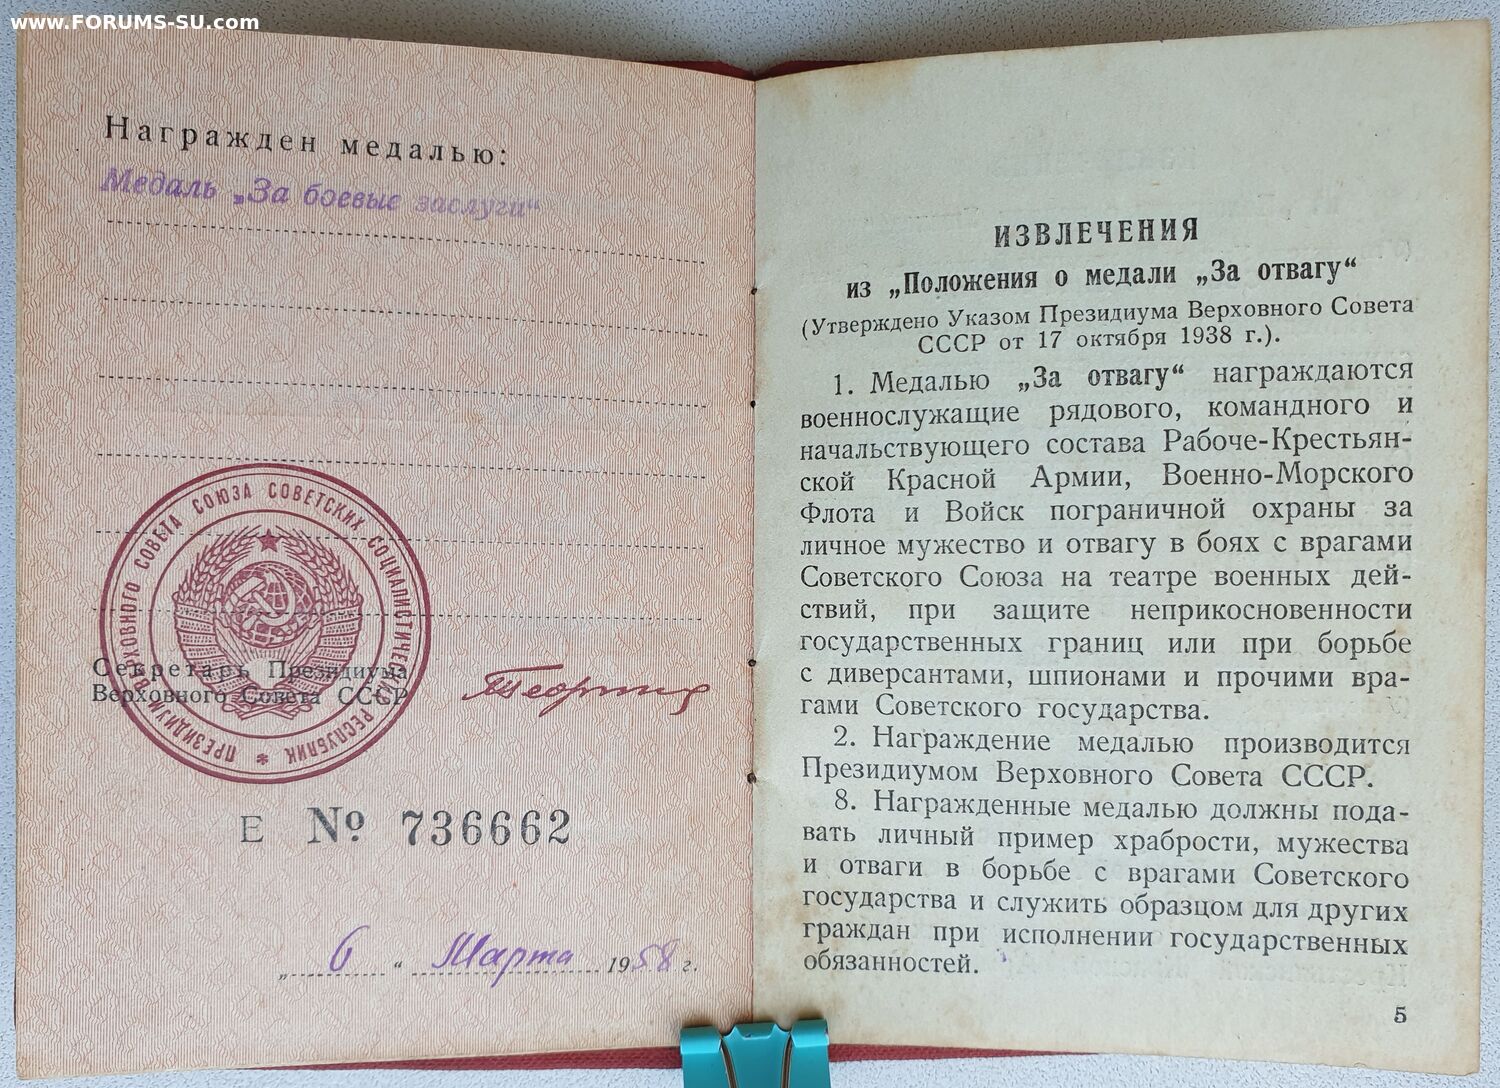 www.FORUMS-SU.com
Награжден медалью:
Медаль „За боевые заслуги“
ПРЕЗИДИУМ ВЕРХОВНОГО СОВЕТА СОЮЗА СОВЕТСКИХ СОЦИАЛИСТИЧЕСКИХ РЕСПУБЛИК *
Секретарь Президиума
Верховного Совета СССР
Е № 736662
„ 6 “ Марта 1958 г.
ИЗВЛЕЧЕНИЯ
из „Положения о медали „За отвагу“
(Утверждено Указом Президиума Верховного Совета
СССР от 17 октября 1938 г.).
1. Медалью „За отвагу“ награждаются
военнослужащие рядового, командного и
начальствующего состава Рабоче-Крестьян-
ской Красной Армии, Военно-Морского
Флота и Войск пограничной охраны за
личное мужество и отвагу в боях с врагами
Советского Союза на театре военных дей-
ствий, при защите неприкосновенности
государственных границ или при борьбе
с диверсантами, шпионами и прочими вра-
гами Советского государства.
2. Награждение медалью производится
Президиумом Верховного Совета СССР.
8. Награжденные медалью должны пода-
вать личный пример храбрости, мужества
и отваги в борьбе с врагами Советского
государства и служить образцом для других
граждан при исполнении государственных
обязанностей.
5